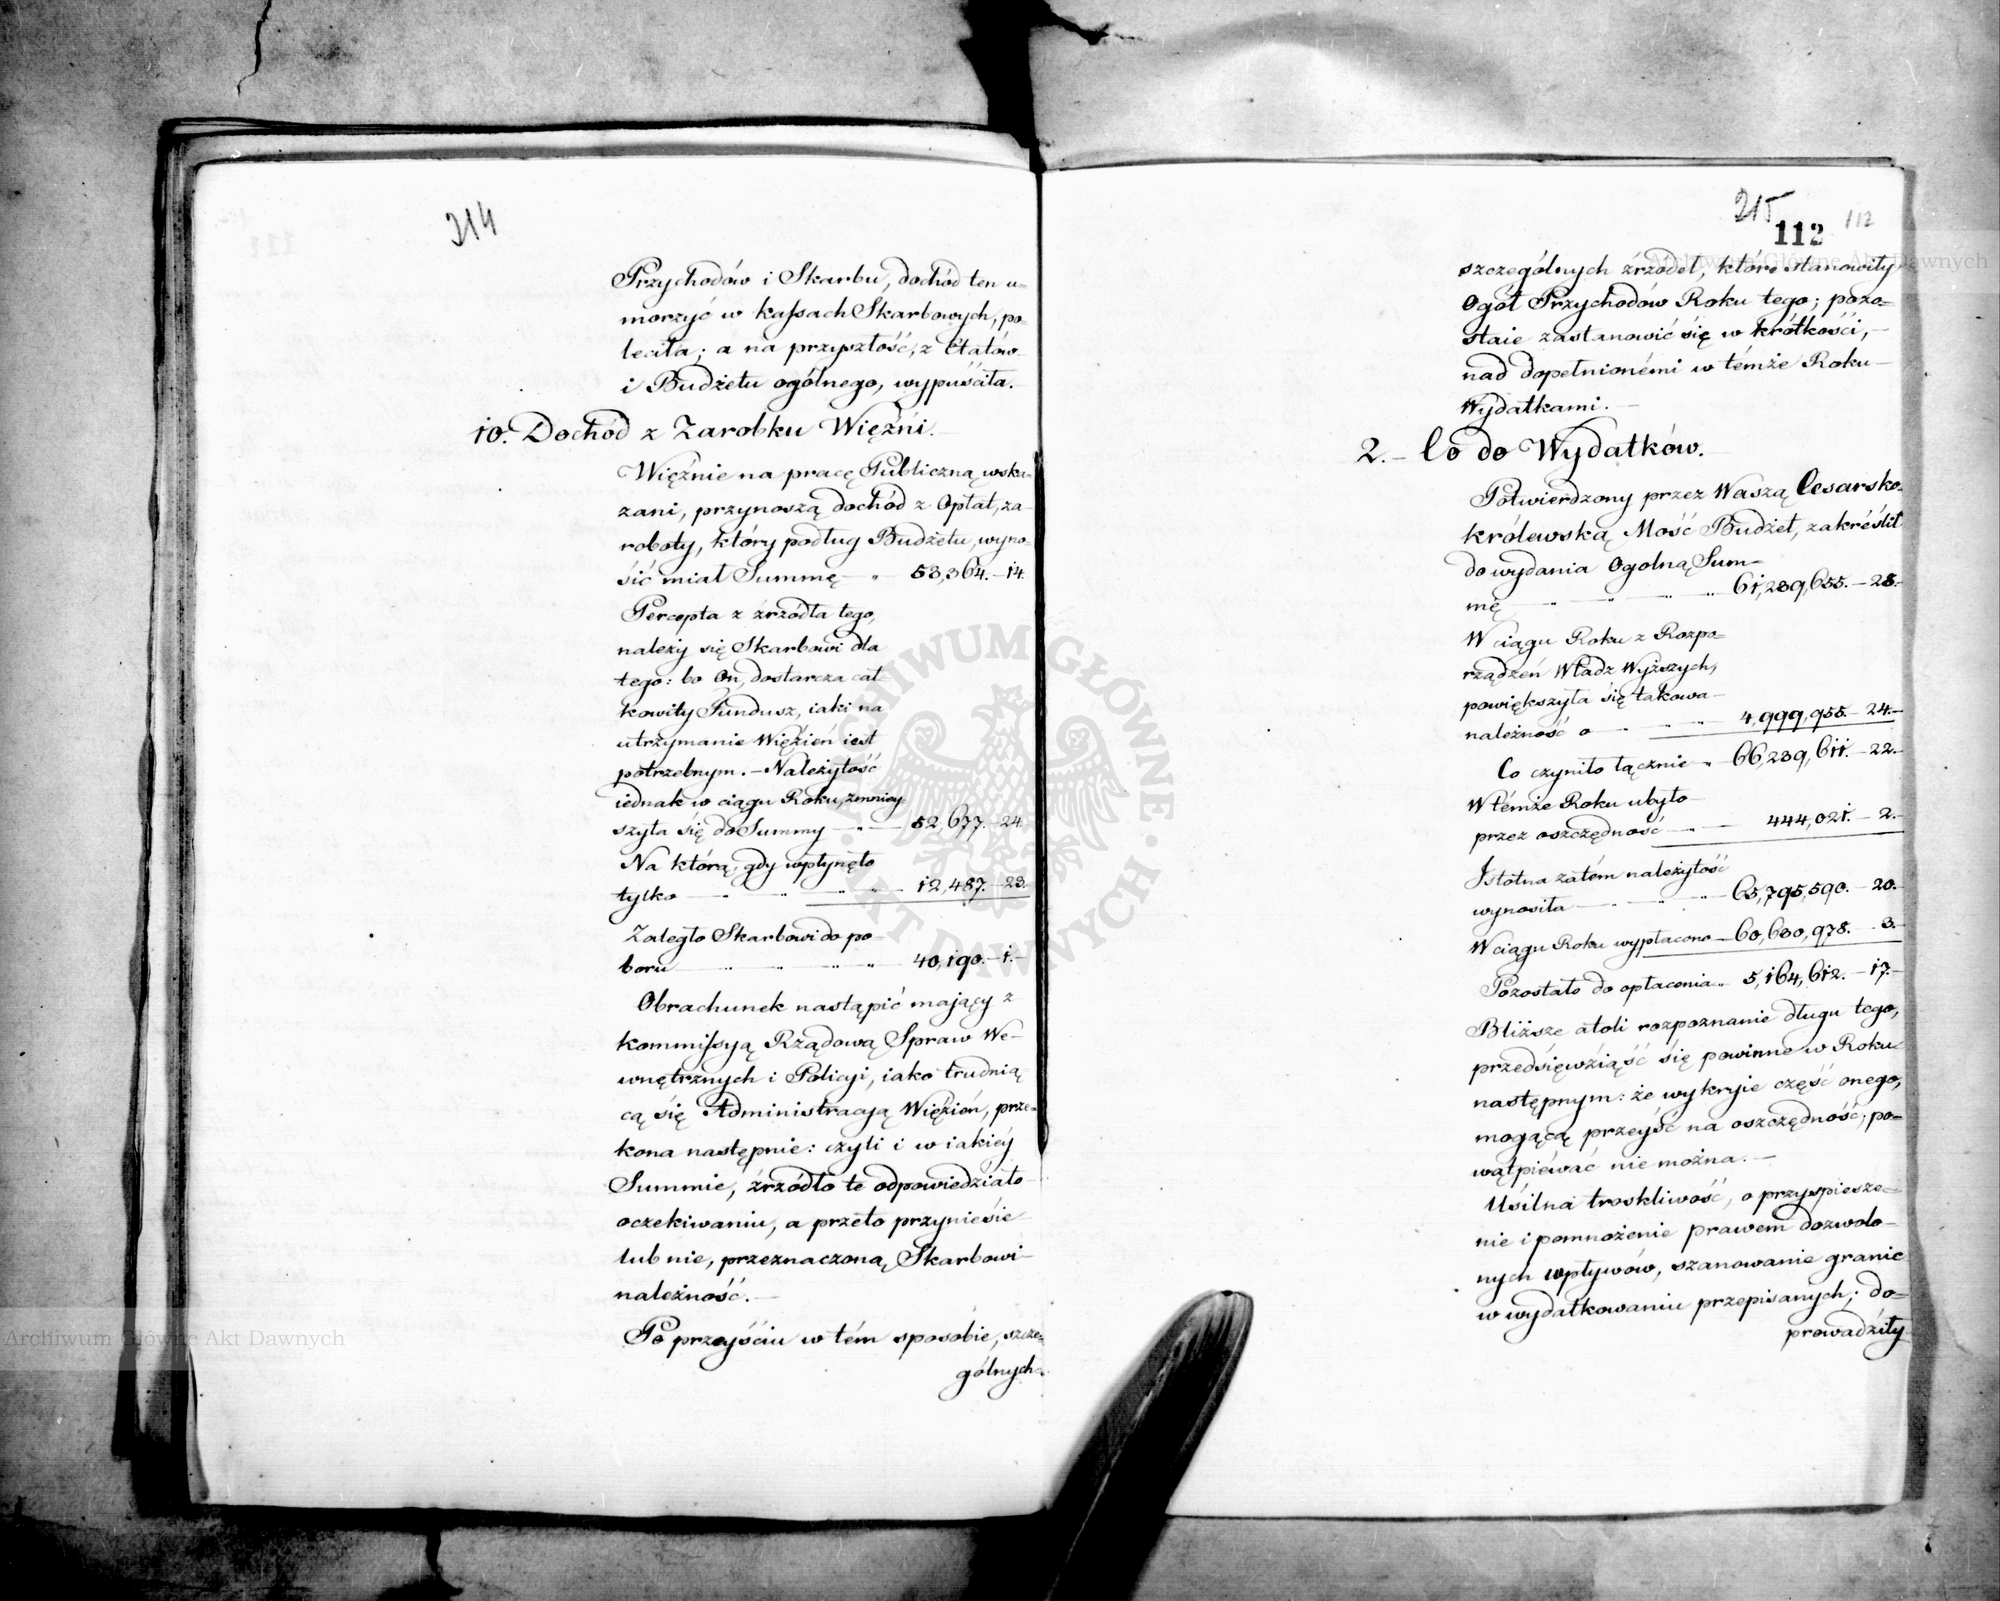 214
Przychodów i Skarbu, dochód ten u-
morzyć w kassach Skarbowych, po-
leciła; a na przyszłość, z Etatów
i Budżetu ogólnego, wypuściła.
10. Dochód z Zarobku Więźni.
Więźnie na pracę Publiczną wska-
zani, przynoszą dochód z Opłat, za
roboty, który podług Budżetu, wyno-
sić miał Summę — " 53,364. — 14.
Percepta z źrzódła tego,
należy się Skarbowi dla
tego: bo On, dostarcza cał-
kowity Fundusz, iaki na
utrzymanie Więzień iest
potrzebnym. — Należytość
iednak w ciągu Roku, zmniey-
szyła się do Summy — " — 52,677. — 24.
Na którą, gdy wpłynęło
tylko — " — " — " — " — 12,487. — 23.
Zaległo Skarbowi do po-
boru — " — " — " — " — 40,190. — 1. —
Obrachunek nastąpić mający z
kommissyą Rządową Spraw We-
wnętrznych i Policyi, iako trudnią
cą się Administracyą Więzień, prze-
kona następnie: czyli i w iakiey
Summie, źrzódło te odpowiedziało
oczekiwaniu, a przeto przyniesie
lub nie, przeznaczoną Skarbowi
należność. —
Po przeyściu w tém sposobie, szcze-
gólnych
215
112 112
szczególnych źrzódeł, które stanowiły
Ogół Przychodów Roku tego; pozo-
staie zastanowić się w krótkości, —
nad dopełnionémi w témże Roku —
Wydatkami. —
2. — Co do Wydatków.
Potwierdzony przez Waszą Cesarsko-
królewską Mość Budżet, zakréślił
do wydania Ogolną Sum-
mę — " — " — " — " 61,239,655. — 28. —
W ciągu Roku z Rozpo-
rządzeń Władz Wyższych,
powiększyła się takowa —
należność o — " — " — " — 4,999,955. — 24. —
Co czyniło łącznie " — 66,239,611. — 22. —
W témże Roku ubyło —
przez oszczędność — " — 444,021. — 2. —
Istotna zatém należytość
wynosiła — " — " — 65,795,590. — 20. —
W ciągu Roku wypłacono — 60,630,978. — 3. —
Pozostało do opłacenia " 5,164,612. — 17. —
Bliższe atoli rozpoznanie długu tego,
przedsięwziąść się powinne w Roku
następnym: że wykryie część onego,
mogącą przeyść na oszczędność, po-
wątpiéwać nie można. —
Usilna troskliwość, o przyspiesze-
nie i pomnożenie prawem dozwolo-
nych wpływów, szanowanie granic
w wydatkowaniu przepisanych; do-
prowadziły
Archiwum Główne Akt Dawnych
Archiwum Główne Akt Dawnych
ARCHIWUM GŁÓWNE AKT DAWNYCH